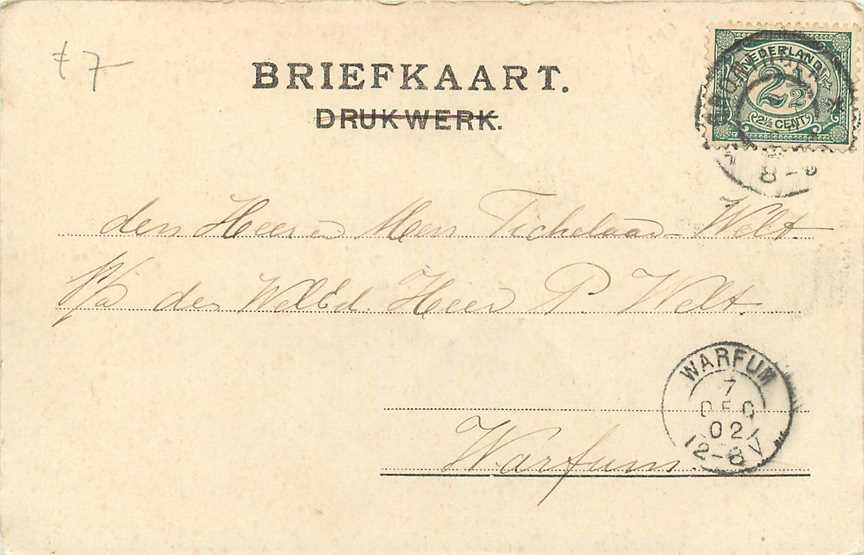 £7
BRIEFKAART.
DRUKWERK.
NEDERLAND
2½
2½ CENT
8-
den Heer en Mevr Tichelaar-Welt.
p/a den WelEd. Heer P. Welt.
Warfum.
WARFUM
7
DEC
02
12-8V